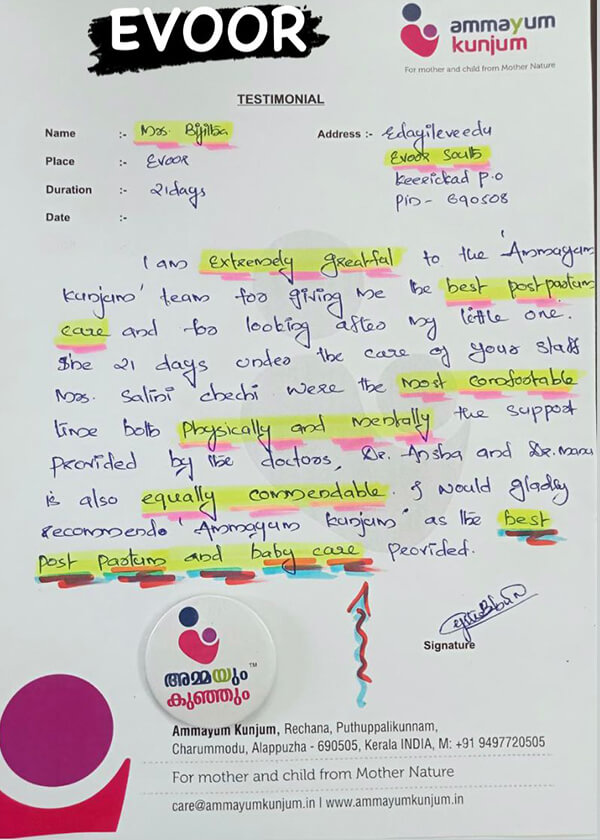 EVOOR
ammayum
kunjum
For mother and child from Mother Nature
TESTIMONIAL
Name :- Mrs. Bijitha Address :- Edayileveedu
Place :- Evoor Evoor South
Duration :- 21days Keerickad P.O
Date :- Pin - 690508
I am extremely greatful to the 'Ammayum
Kunjum' team for giving me the best postpartum
care and for looking after my little one.
The 21 days under the care of your staff
Mrs. Salini chechi were the most comfortable
time both physically and mentally the support
provided by the doctors, Dr. Ansha and Dr. Manu
is also equally commendable. I would gladly
recommend 'Ammayum Kunjum' as the best
post partum and baby care provided.
Signature
അമ്മയും TM
കുഞ്ഞും
Ammayum Kunjum, Rechana, Puthuppalikunnam,
Charummodu, Alappuzha - 690505, Kerala INDIA, M: +91 9497720505
For mother and child from Mother Nature
care@ammayumkunjum.in I www.ammayumkunjum.in